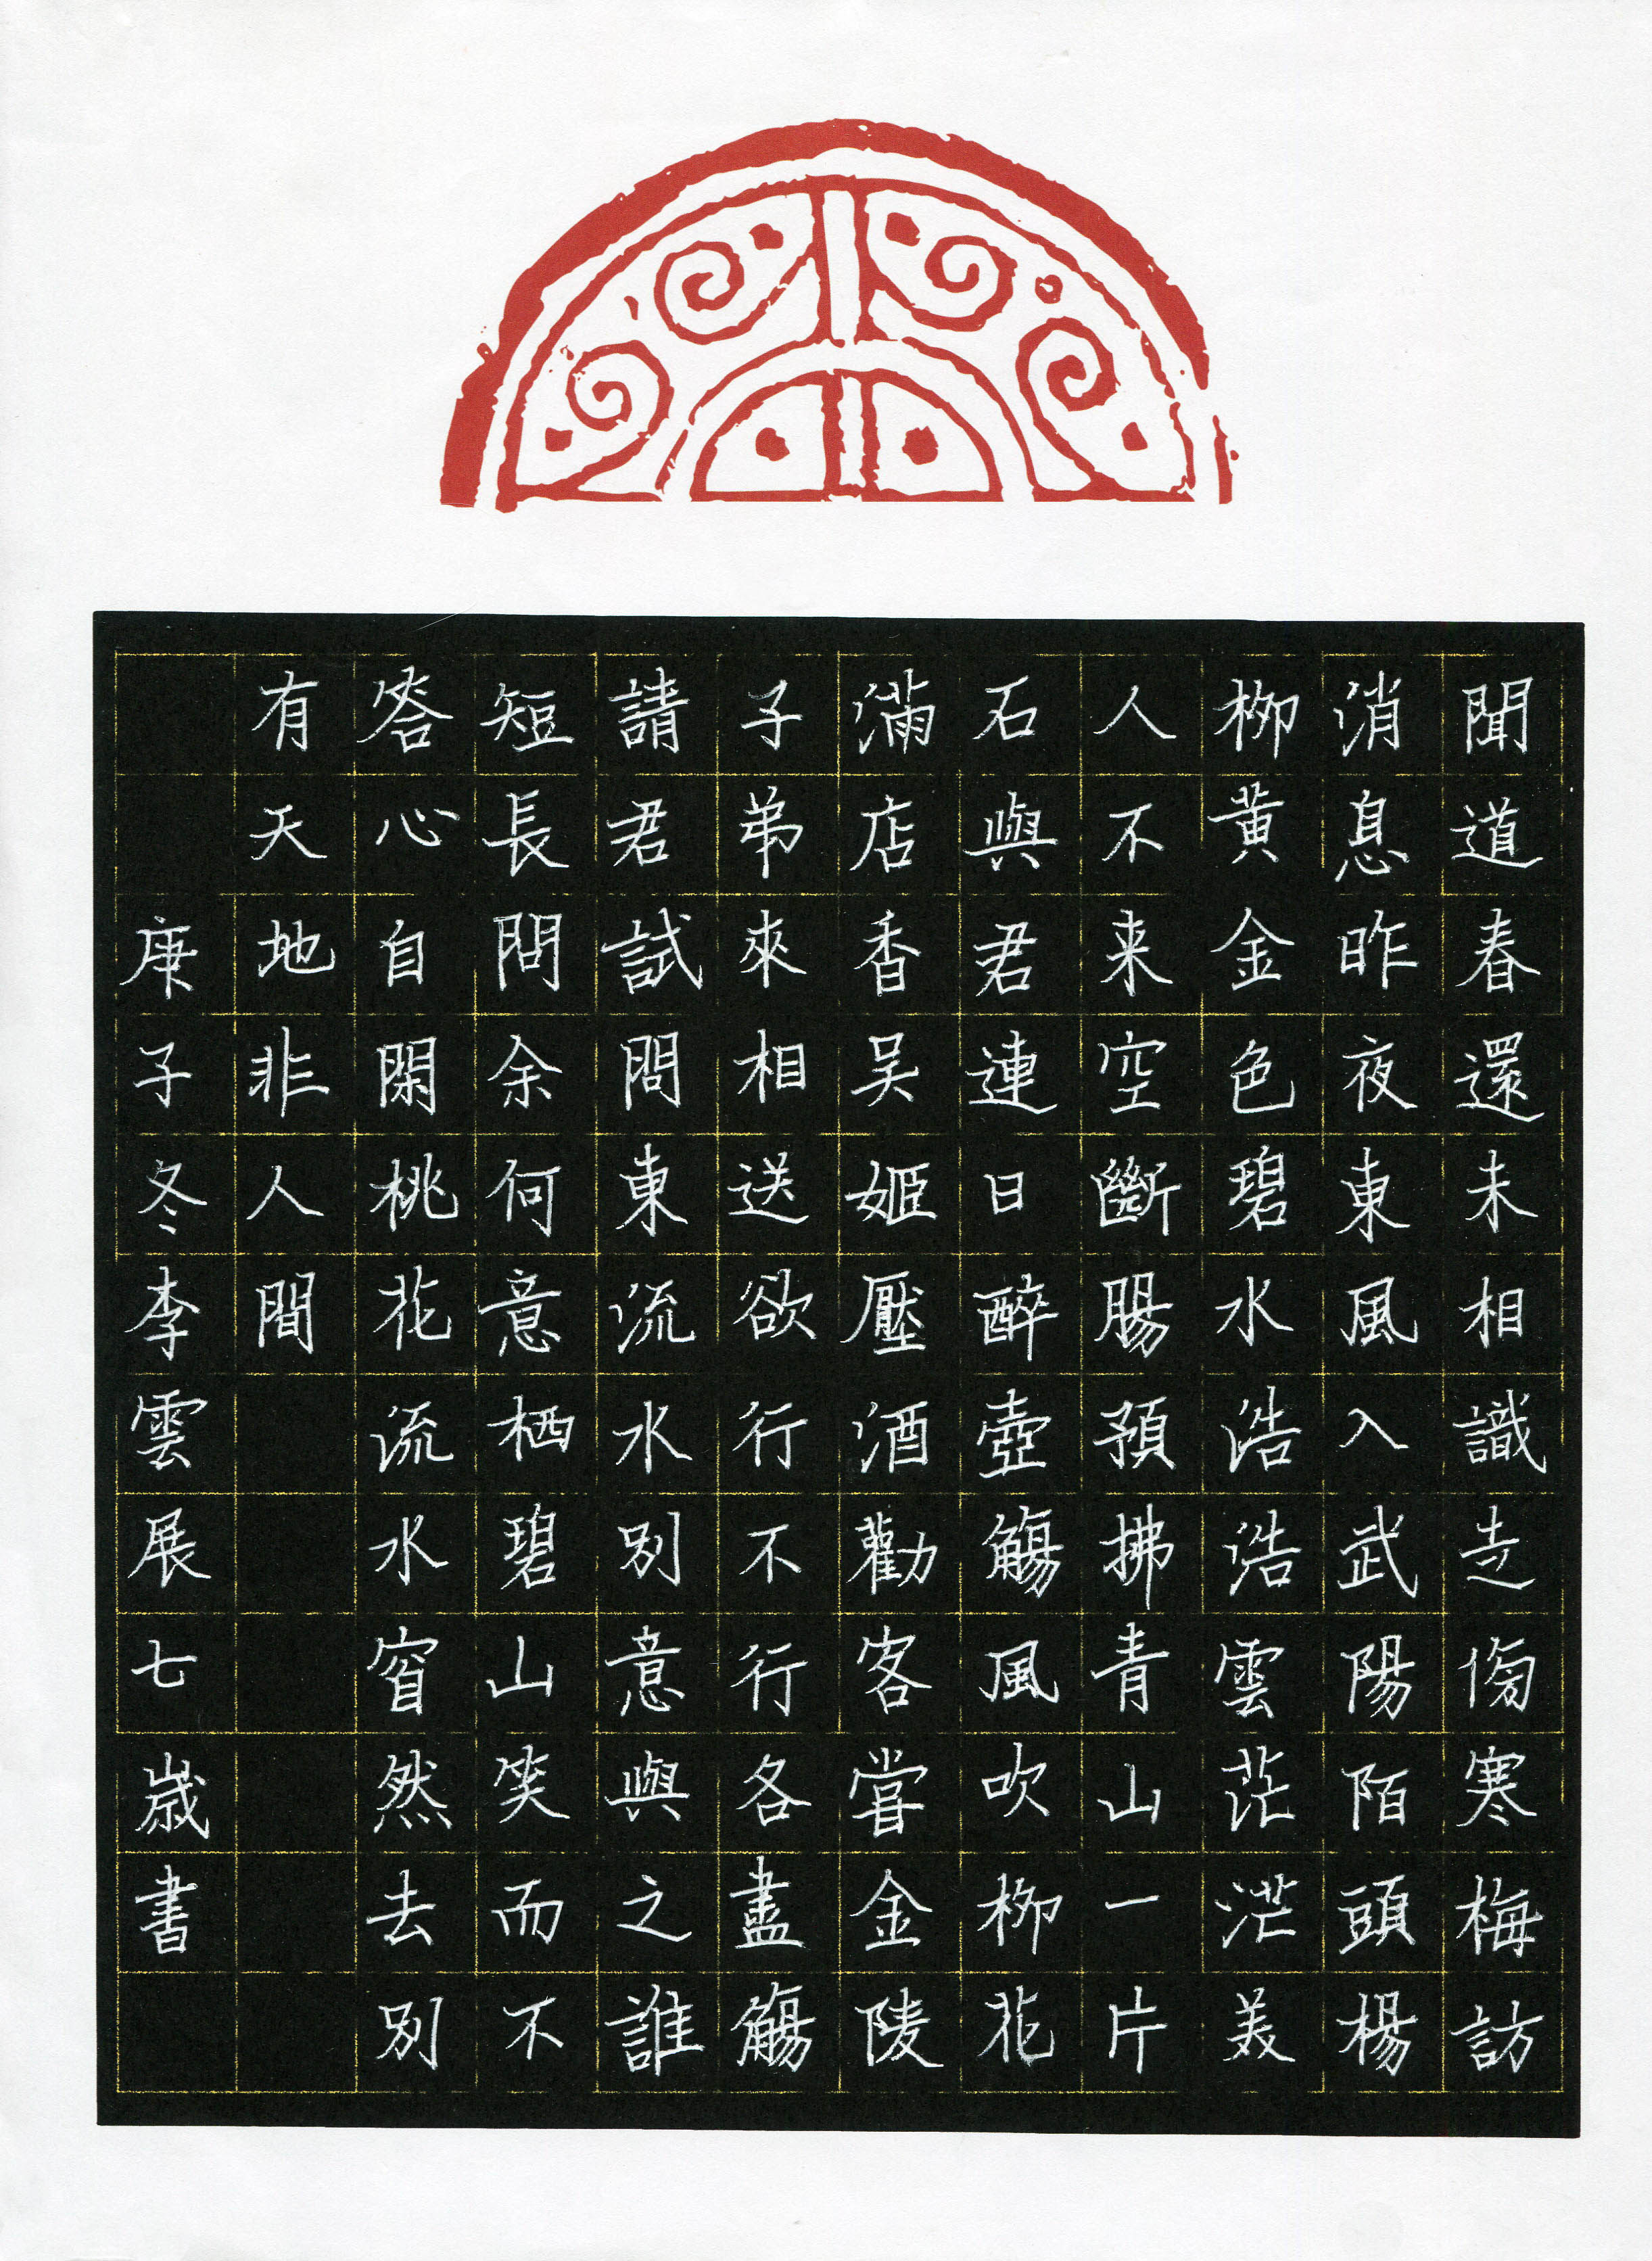 聞道春還未相識走傍寒梅訪
消息昨夜東風入武陽陌頭楊
柳黃金色碧水浩浩雲茫茫美
人不来空斷腸預拂青山一片
石與君連日醉壺觴風吹柳花
滿店香吴姬壓酒勸客嘗金陵
子弟來相送欲行不行各盡觴
請君試問東流水別意與之誰
短長問余何意栖碧山笑而不
答心自閑桃花流水窅然去別
有天地非人間
庚子冬李雲展七歲書